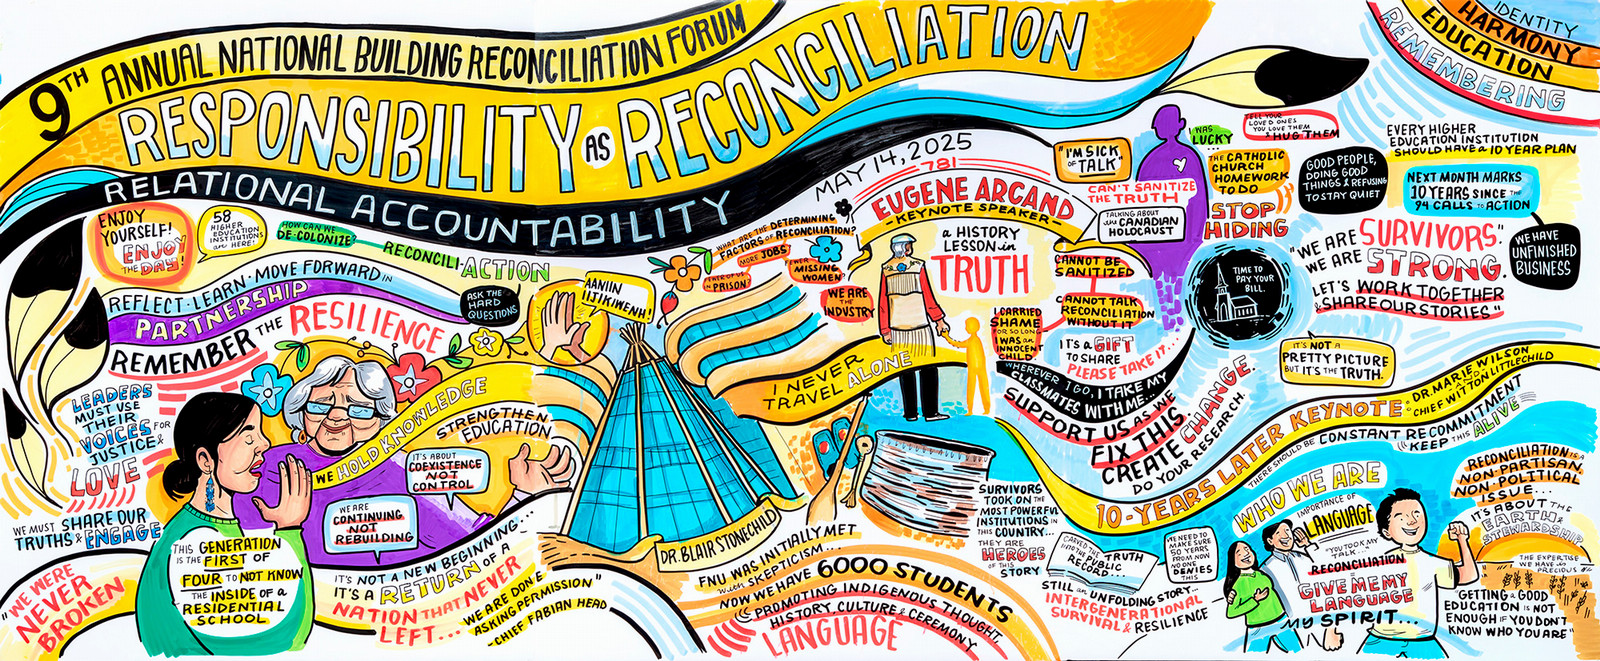 9TH ANNUAL NATIONAL BUILDING RECONCILIATION FORUM
RESPONSIBILITY AS RECONCILIATION
RELATIONAL ACCOUNTABILITY
MAY 14, 2025
IDENTITY
HARMONY
EDUCATION
REMEMBERING
ENJOY
YOURSELF!
ENJOY
THE DAY!
58
HIGHER
EDUCATION
INSTITUTIONS
ARE HERE!
HOW CAN WE
DE-COLONIZE
RECONCILI-ACTION
REFLECT • LEARN • MOVE FORWARD IN
PARTNERSHIP
ASK THE
HARD
QUESTIONS
REMEMBER THE RESILIENCE
AANIIN
IIJIKIWENH!
LEADERS
MUST USE
THEIR
VOICES FOR
JUSTICE &
LOVE
WE MUST SHARE OUR
TRUTHS & ENGAGE
"WE WERE
NEVER
BROKEN
THIS GENERATION
IS THE FIRST OF
FOUR TO NOT KNOW
THE INSIDE OF A
RESIDENTIAL
SCHOOL
WE HOLD KNOWLEDGE
STRENGTHEN
EDUCATION
IT'S ABOUT
COEXISTENCE
NOT
CONTROL
WE ARE
CONTINUING
NOT
REBUILDING
IT'S NOT A NEW BEGINNING...
IT'S A RETURN OF A
NATION THAT NEVER
LEFT...
WE ARE DONE
ASKING PERMISSION"
-CHIEF FABIAN HEAD
WHAT ARE THE DETERMINING
FACTORS OF RECONCILIATION?
MORE JOBS
FEWER
MISSING
WOMEN?
IN PRISON?
WE ARE
THE
INDUSTRY
DR. BLAIR STONECHILD
FNU WAS INITIALLY MET
WITH SKEPTICISM...
NOW WE HAVE 6000 STUDENTS
PROMOTING INDIGENOUS THOUGHT,
HISTORY, CULTURE & CEREMONY
LANGUAGE
781
EUGENE ARCAND
-KEYNOTE SPEAKER-
A HISTORY
LESSON IN
TRUTH
I NEVER
TRAVEL ALONE
"I'M SICK
OF TALK"
CAN'T SANITIZE
THE TRUTH
TALKING ABOUT
THE CANADIAN
HOLOCAUST
CANNOT BE
SANITIZED
CANNOT TALK
RECONCILIATION
WITHOUT IT
I CARRIED
SHAME
FOR SO LONG
I WAS AN
INNOCENT
CHILD
IT'S A GIFT
TO SHARE
PLEASE TAKE IT...
WHEREVER I GO, I TAKE MY
CLASSMATES WITH ME...
SUPPORT US AS WE
FIX THIS.
CREATE CHANGE.
DO YOUR RESEARCH.
I WAS
LUCKY
TELL YOUR
LOVED ONES
YOU LOVE THEM
& HUG THEM
THE CATHOLIC
CHURCH
HAS HOMEWORK
TO DO
STOP
HIDING
TIME TO
PAY YOUR
BILL.
GOOD PEOPLE,
DOING GOOD
THINGS & REFUSING
TO STAY QUIET
EVERY HIGHER
EDUCATION INSTITUTION
SHOULD HAVE A 10 YEAR PLAN
NEXT MONTH MARKS
10 YEARS SINCE THE
94 CALLS TO ACTION
"WE ARE SURVIVORS."
WE ARE STRONG.
LET'S WORK TOGETHER
& SHARE OUR STORIES"
WE HAVE
UNFINISHED
BUSINESS
IT'S NOT A
PRETTY PICTURE
BUT IT'S THE TRUTH.
SURVIVORS
TOOK ON THE
MOST POWERFUL
INSTITUTIONS IN
THIS COUNTRY...
THEY ARE
HEROES
OF THIS
STORY
CARVED THE TRUTH
INTO THE PUBLIC
RECORD...
STILL AN UNFOLDING STORY...
INTERGENERATIONAL
SURVIVAL & RESILIENCE
WE NEED TO
MAKE SURE
50 YEARS
FROM NOW
NO ONE
DENIES
THIS
10-YEARS LATER KEYNOTE: DR. MARIE WILSON
AND
CHIEF WILTON LITTLECHILD
THERE SHOULD BE CONSTANT RECOMMITMENT
KEEP THIS ALIVE
WHO WE ARE
IMPORTANCE OF
LANGUAGE
"YOU TOOK MY
TALK..."
RECONCILIATION
IS
GIVE ME MY
LANGUAGE
MY SPIRIT...
RECONCILIATION IS A
NON-PARTISAN,
NON-POLITICAL
ISSUE...
IT'S ABOUT THE
EARTH &
STEWARDSHIP
THE EXPERTISE
WE HAVE IS
PRECIOUS
"GETTING A GOOD
EDUCATION IS NOT
ENOUGH IF YOU DON'T
KNOW WHO YOU ARE"